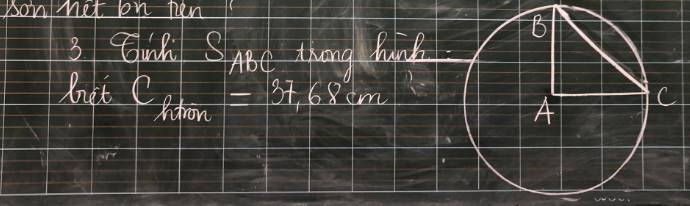 sơn hết bn tiền ?
3. Tính S ABC trong hình
biết C htròn = 37,68 cm
B
A
C